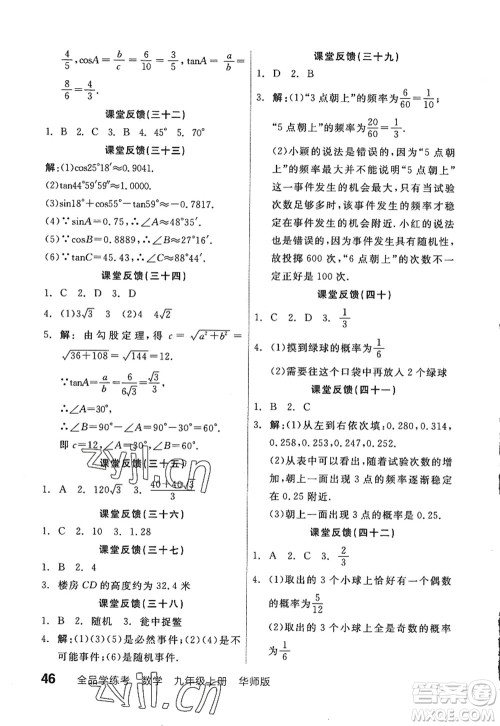 4/5, cosA=b/c=6/10, tanA=a/b
=8/6
课堂反馈(三十二)
1. B 2. C 3. B 4. 45° 5. 30°
课堂反馈(三十三)
解:(1)cos25°18′≈0.9041.
(2)tan44°59′59″≈1.0000.
(3)sin18°+cos55°-tan59°≈-0.7817.
(4)∵sinA=0.9816,∴∠A≈79°.
(5)∵cosB=0.8889,∴∠B≈27°.
(6)∵tanC=0.1890,∴∠C≈11°.
课堂反馈(三十四)
1. C 2. D 3. D
4. (1)3√3 (2)4 (3)2 4√2
5. 解:由勾股定理,得 c=√(a²+b²)=
√(36+108)=√144=12.
∵tanA=6/(6√3)=√3/3,∴∠A=30°,
∴∠B=90°-∠A=90°-30°=60°.
即 c=12,∠A=30°,∠B=60°.
课堂反馈(三十五)
1. A 2. 120√3 3. (40+40√3)/3
课堂反馈(三十六)
1. C 2. 10 3. 1.28
课堂反馈(三十七)
1. D
2. 楼房 CD 的高度约为 32.4 米
课堂反馈(三十八)
1. B 2. 随机 3. 瓮中捉鳖
4. 解:(1)(3)(5)是必然事件;(4)是不
可能事件;(2)(6)是随机事件.
课堂反馈(三十九)
1. D 2. B
3. 解:(1)“3 点朝上”的频率为6/60=1/10,
“5 点朝上”的频率为20/60=1/3.
(2)小颖的说法是错误的,“5 点朝
上”的频率最大并不能说明“5 点朝上”
这一事件发生的机会最大,只有当试验
次数足够多时,该事件发生的频率才稳
定在事件发生的机会附近.小红的说法
也是错误的,因为事件发生具有随机性,
故投掷 600 次,“6 点朝上”的次数不一
定正好是 100 次.
课堂反馈(四十)
1. A 2. D 3. 1/3
4. (1)摸到绿球的概率为1/6
(2)需要往这个口袋中再放入 2 个绿球
课堂反馈(四十一)
1. B 2. C
3. 解:(1)从左到右依次填:0.280,0.314,
0.258,0.253,0.247,0.251.
(2)朝上一面出现 3 点的频率随着试
验次数的增加,表现出来的规律是逐渐
稳定在 0.25 附近.
(3)朝上一面出现 3 点的机会是 0.25.
课堂反馈(四十二)
1. A 2. C 3. 2/3
4. (1)取出的 3 个小球上恰好有一个偶数
的概率为5/12
(2)取出的 3 个小球上全是奇数的概率
是1/6
46 全品学练考 数学 九年级上册 华师版
zyjl.cn
zyjl.cn